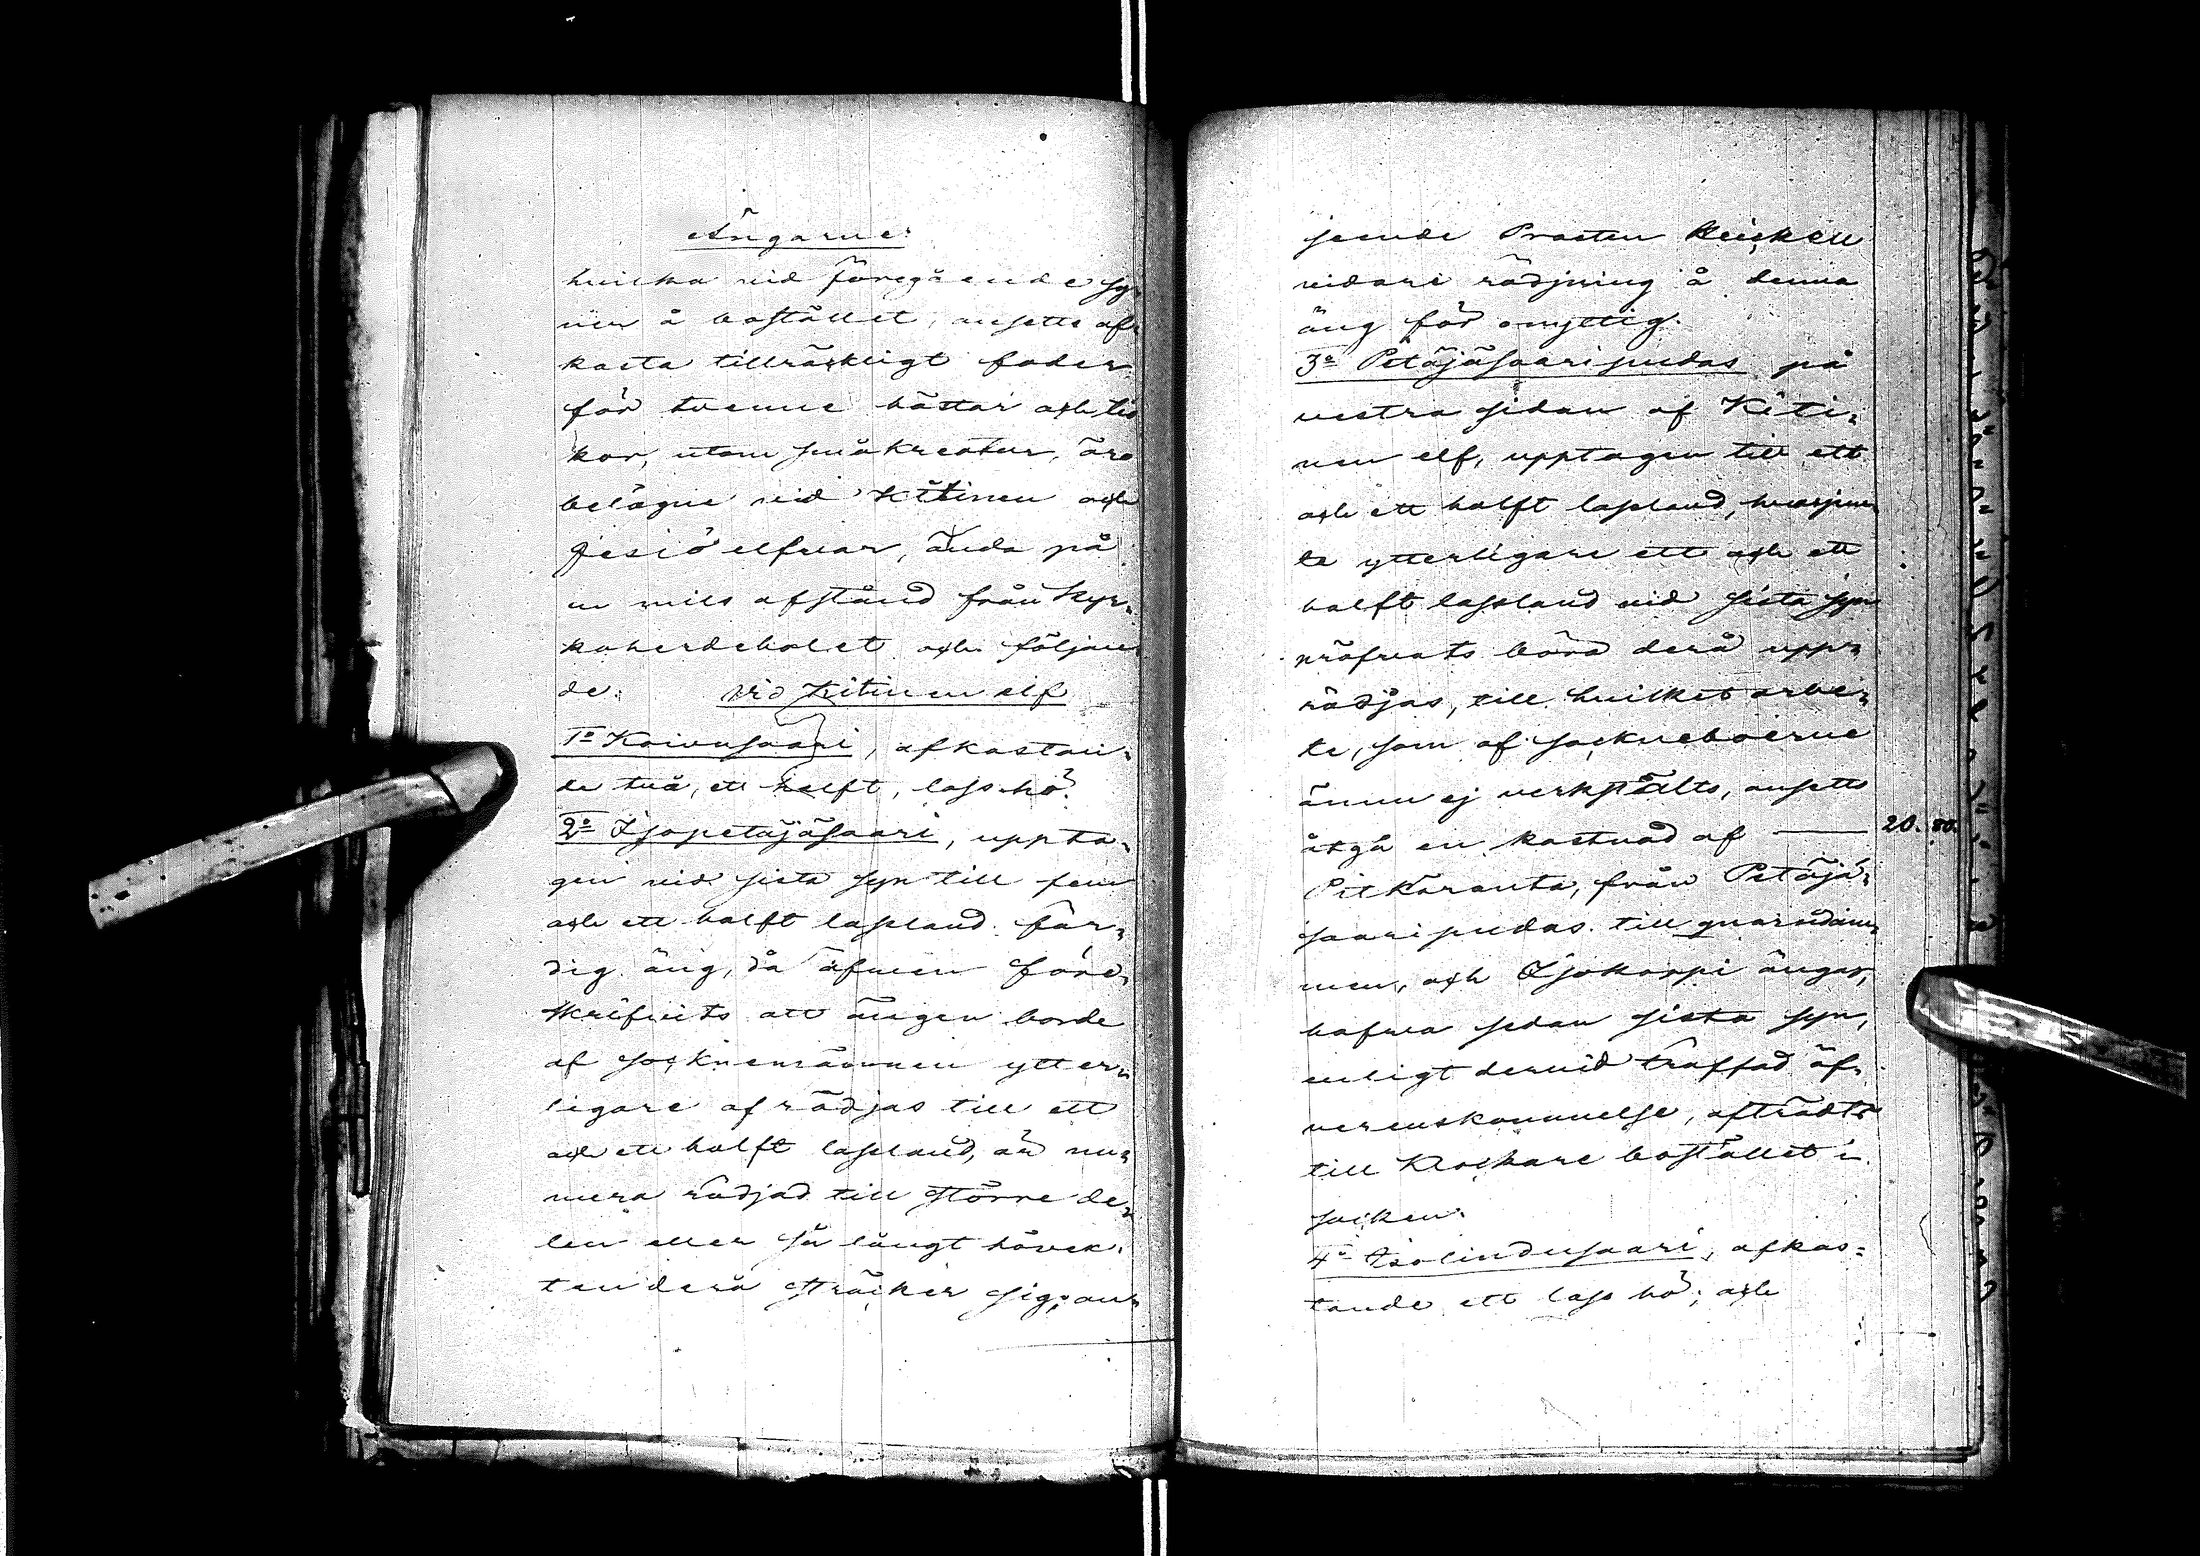 Ängarne:
hvilka vid föregående sy-
ner å bostället, ansetts af-
kasta tillräckligt foder
för tvenne hästar och tio
kor, utom småkreatur, äro
belägne vid Kitinen och
Jesiö elfvar, ända på
en mils afstånd från Kyr-
koherdebolet och följan-
de: vid Kitinen elf
1o Koivusaari, afkastan-
de två, ett halft, lass hö.
2o Isopetäjäsaari, uppta-
gen vid sista syn till fem
och ett halft lassland fär-
dig äng, då äfven före-
skrifvits att ängen borde
af socknemännen ytter-
ligare afrödjas till ett
och ett halft lassland, är nu-
mera rödjad till större de-
len eller så långt hårek-
ten derå sträcker sig; an-
seende Prosten Keckell
vidare rödjning å denna
äng för onyttig.
3o Petäjäsaaripudas på
vestra sidan af Kiti-
nen elf, upptagen till ett
och ett halft lassland, hvarjem-
te ytterligare ett och ett
halft lassland vid sista syn
pröfvats böra derå upp-
rödjas, till hvilket arbe-
te, som af sockneboerne
ännu ej verkstälts, ansetts
åtgå en kostnad af — 20. 80.
Pitkäranta, från Petäjä-
saaripudas till qvarndam-
men, och Isokorpi ängar,
hafva sedan sista syn,
enligt dervid träffad öf-
verenskommelse, afträdts
till Klockare bostället i
socken.
4o Isolindusaari, afkas-
tande ett lass hö; och